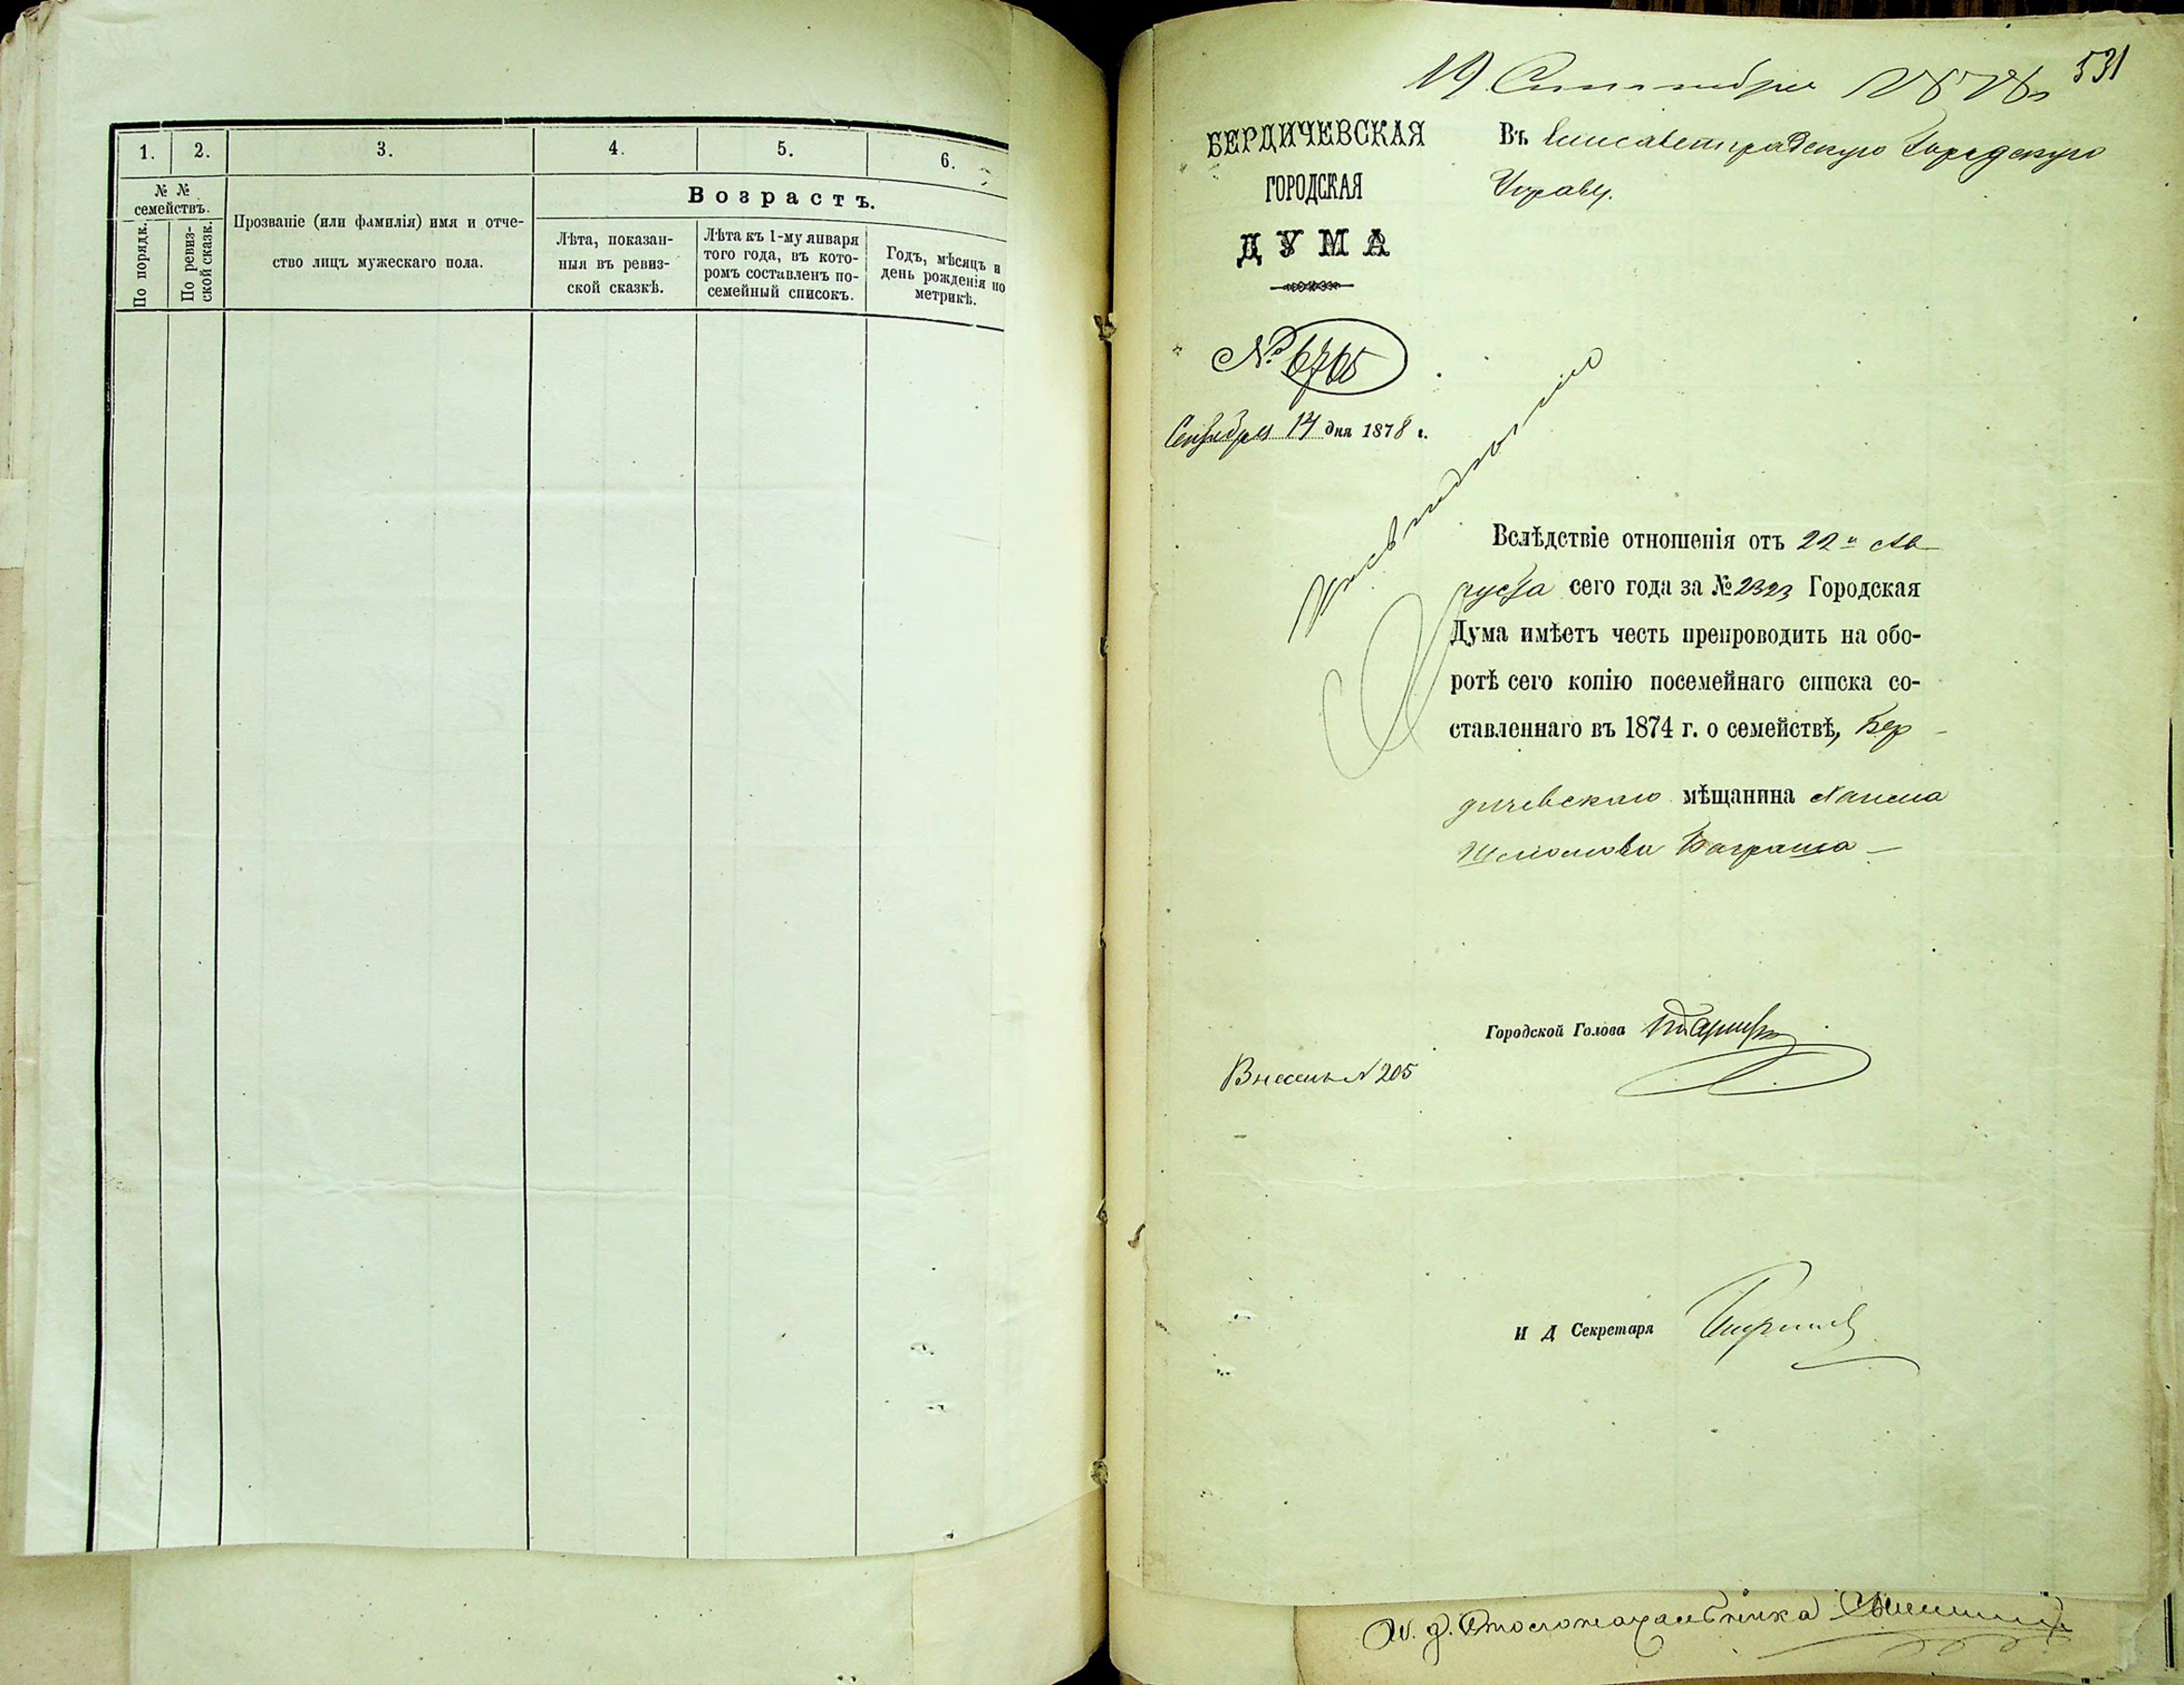 1.
2.
3.
4.
5.
6.
№ №
семействъ.
По порядк.
По ревиз-
ской сказк.
Прозваніе (или фамилія) имя и отче-
ство лицъ мужескаго пола.
Возрастъ.
Лѣта, показан-
ныя въ ревиз-
ской сказкѣ.
Лѣта къ 1-му января
того года, въ кото-
ромъ составленъ по-
семейный списокъ.
Годъ, мѣсяцъ и
день рожденія по
метрикѣ.
531
19 Сентября 1878 г
БЕРДИЧЕВСКАЯ
ГОРОДСКАЯ
ДУМА
№ 6765
Сентября 14 дня 1878 г.
Въ Елисаветградскую Городскую
Управу.
Вслѣдствіе отношенія отъ 22 Ав-
густа сего года за № 2323 Городская
Дума имѣетъ честь препроводить на обо-
ротѣ сего копію посемейнаго списка со-
ставленнаго въ 1874 г. о семействѣ, Бер-
дичевскаго мѣщанина
Шмюлова
Городской Голова
Внесенъ № 205
И Д Секретаря
И. д. Столоначальника